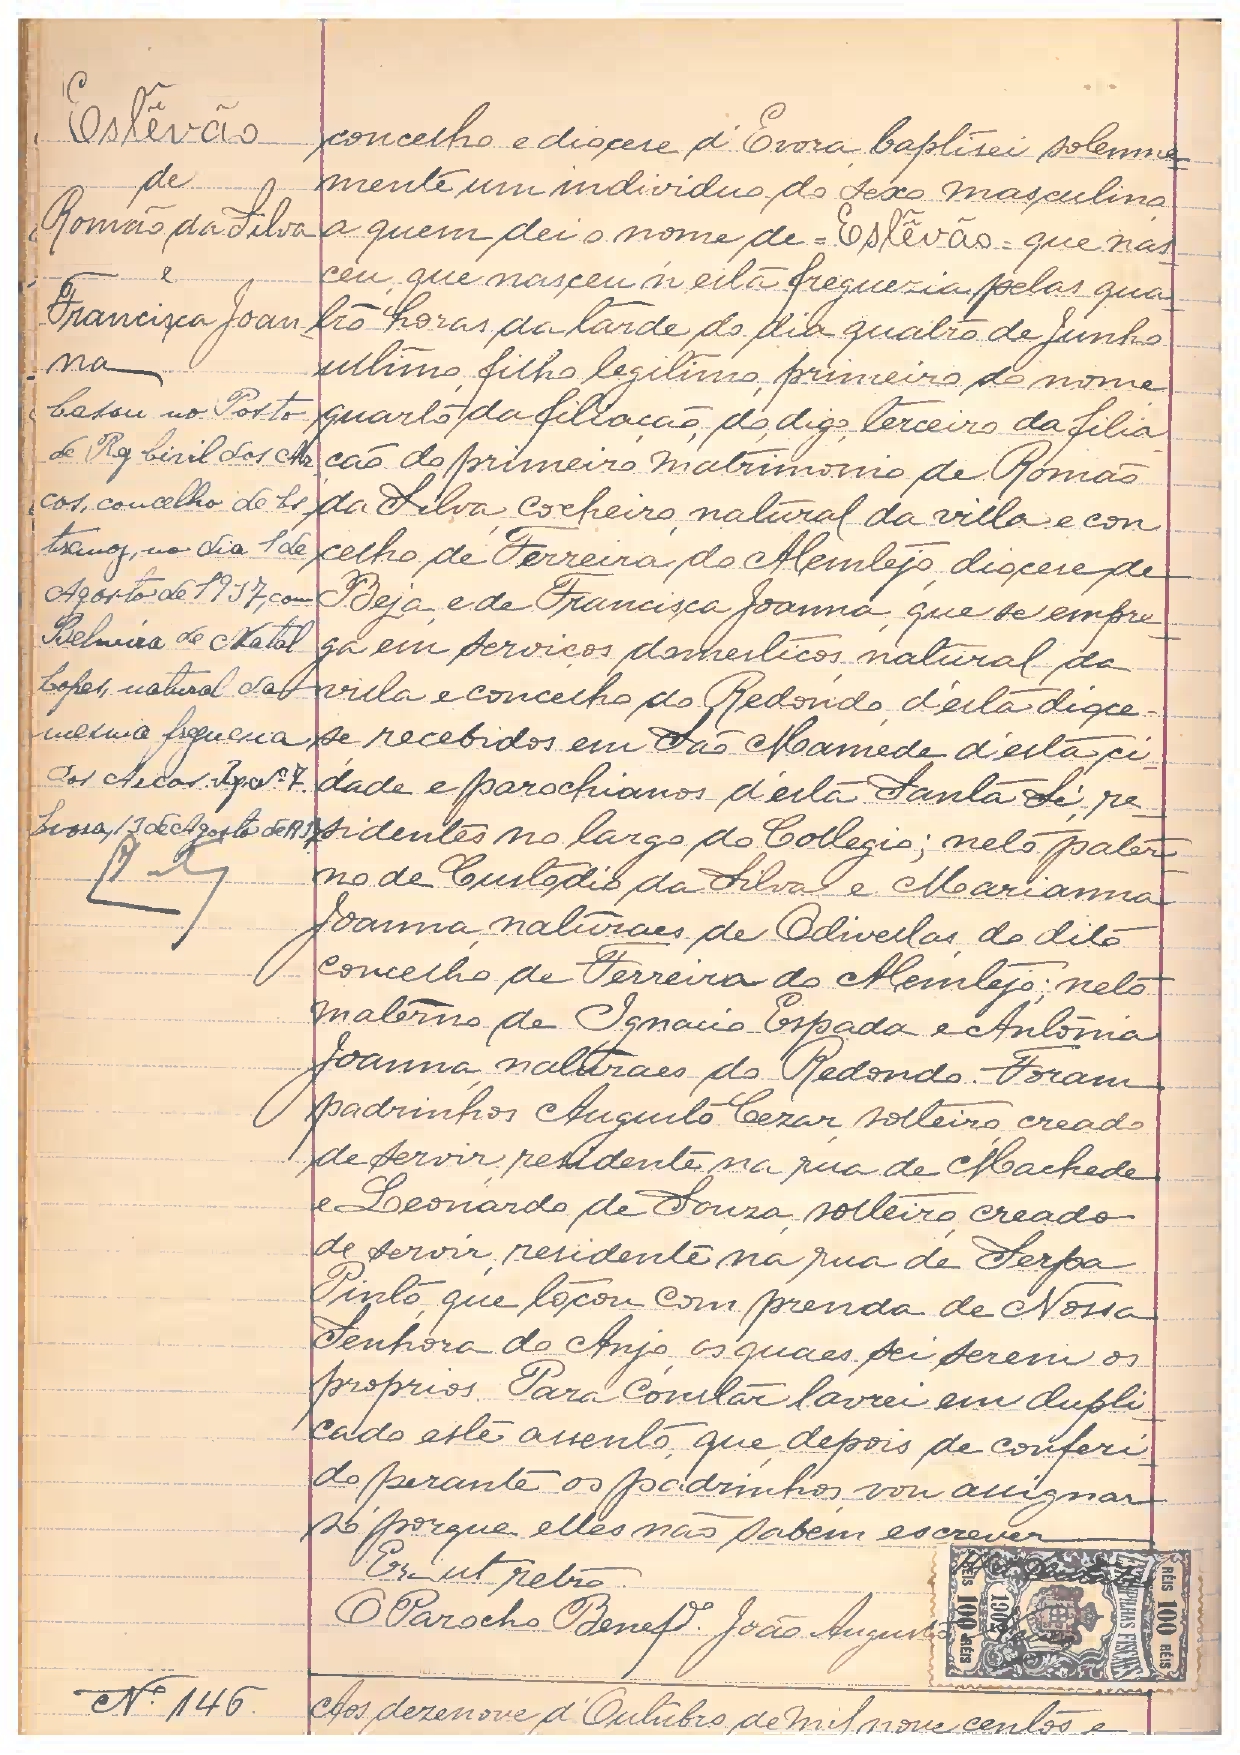 Estêvão
de
Romão da Silva
e
Francisca Joan
na
Casou no Posto
de Reg Civil dos Ar
cos, concelho de Es
tremoz, no dia 1 de
Agosto de 1937, com
Belmira do Natal
Lopes, natural da
mesma freguesia
dos Arcos. Rg. nº 7.
Evora, 13 de Agosto de 1937
concelho e diocese d'Evora, baptisei solemne
mente um individuo do sexo masculino
a quem dei o nome de = Estêvão = que nas
ceu, que nasceu n'esta freguezia pelas qua
tro horas da tarde do dia quatro de Junho
ultimo, filho legitimo, primeiro do nome
quarto da filiação, do, digo, terceiro da filia
cão do primeiro matrimonio de Romão
da Silva, cocheiro, natural da villa e con
celho de Ferreira do Alemtejo, diocese de
Beja, e de Francisca Joanna, que se empre
ga em serviços domesticos, natural da
villa e concelho do Redondo, d'esta dioce-
se recebidos em São Mamede d'esta ci
dade e parochianos d'esta Santa Sé, re
sidentes no largo do Collegio; neto pater
no de Custodio da Silva e Marianna
Joanna, naturaes de Odivellas, do dito
concelho de Ferreira do Alemtejo; neto
materno de Ignacio Espada e Antonia
Joanna, naturaes do Redondo. Foram
padrinhos Augusto Cezar, solteiro, creado
de servir, residente na rua de Machede
e Leonardo de Souza, solteiro, creado
de servir, residente na rua de Serpa
Pinto, que tocou com prenda de Nossa
Senhora do Anjo, os quaes sei serem os
proprios. Para constar lavrei em dupli
cado este assento, que, depois de conferi
do perante os padrinhos, vou assignar
só porque elles não sabem escrever
Er. ut retro.
O Parocho Benefdo. João Augusto
RÉIS 100 RÉIS
1902
ESTAMPILHAS FISCAES
RÉIS 100 RÉIS
Nº 146.
Aos dezenove d'Outubro de mil nove centos e